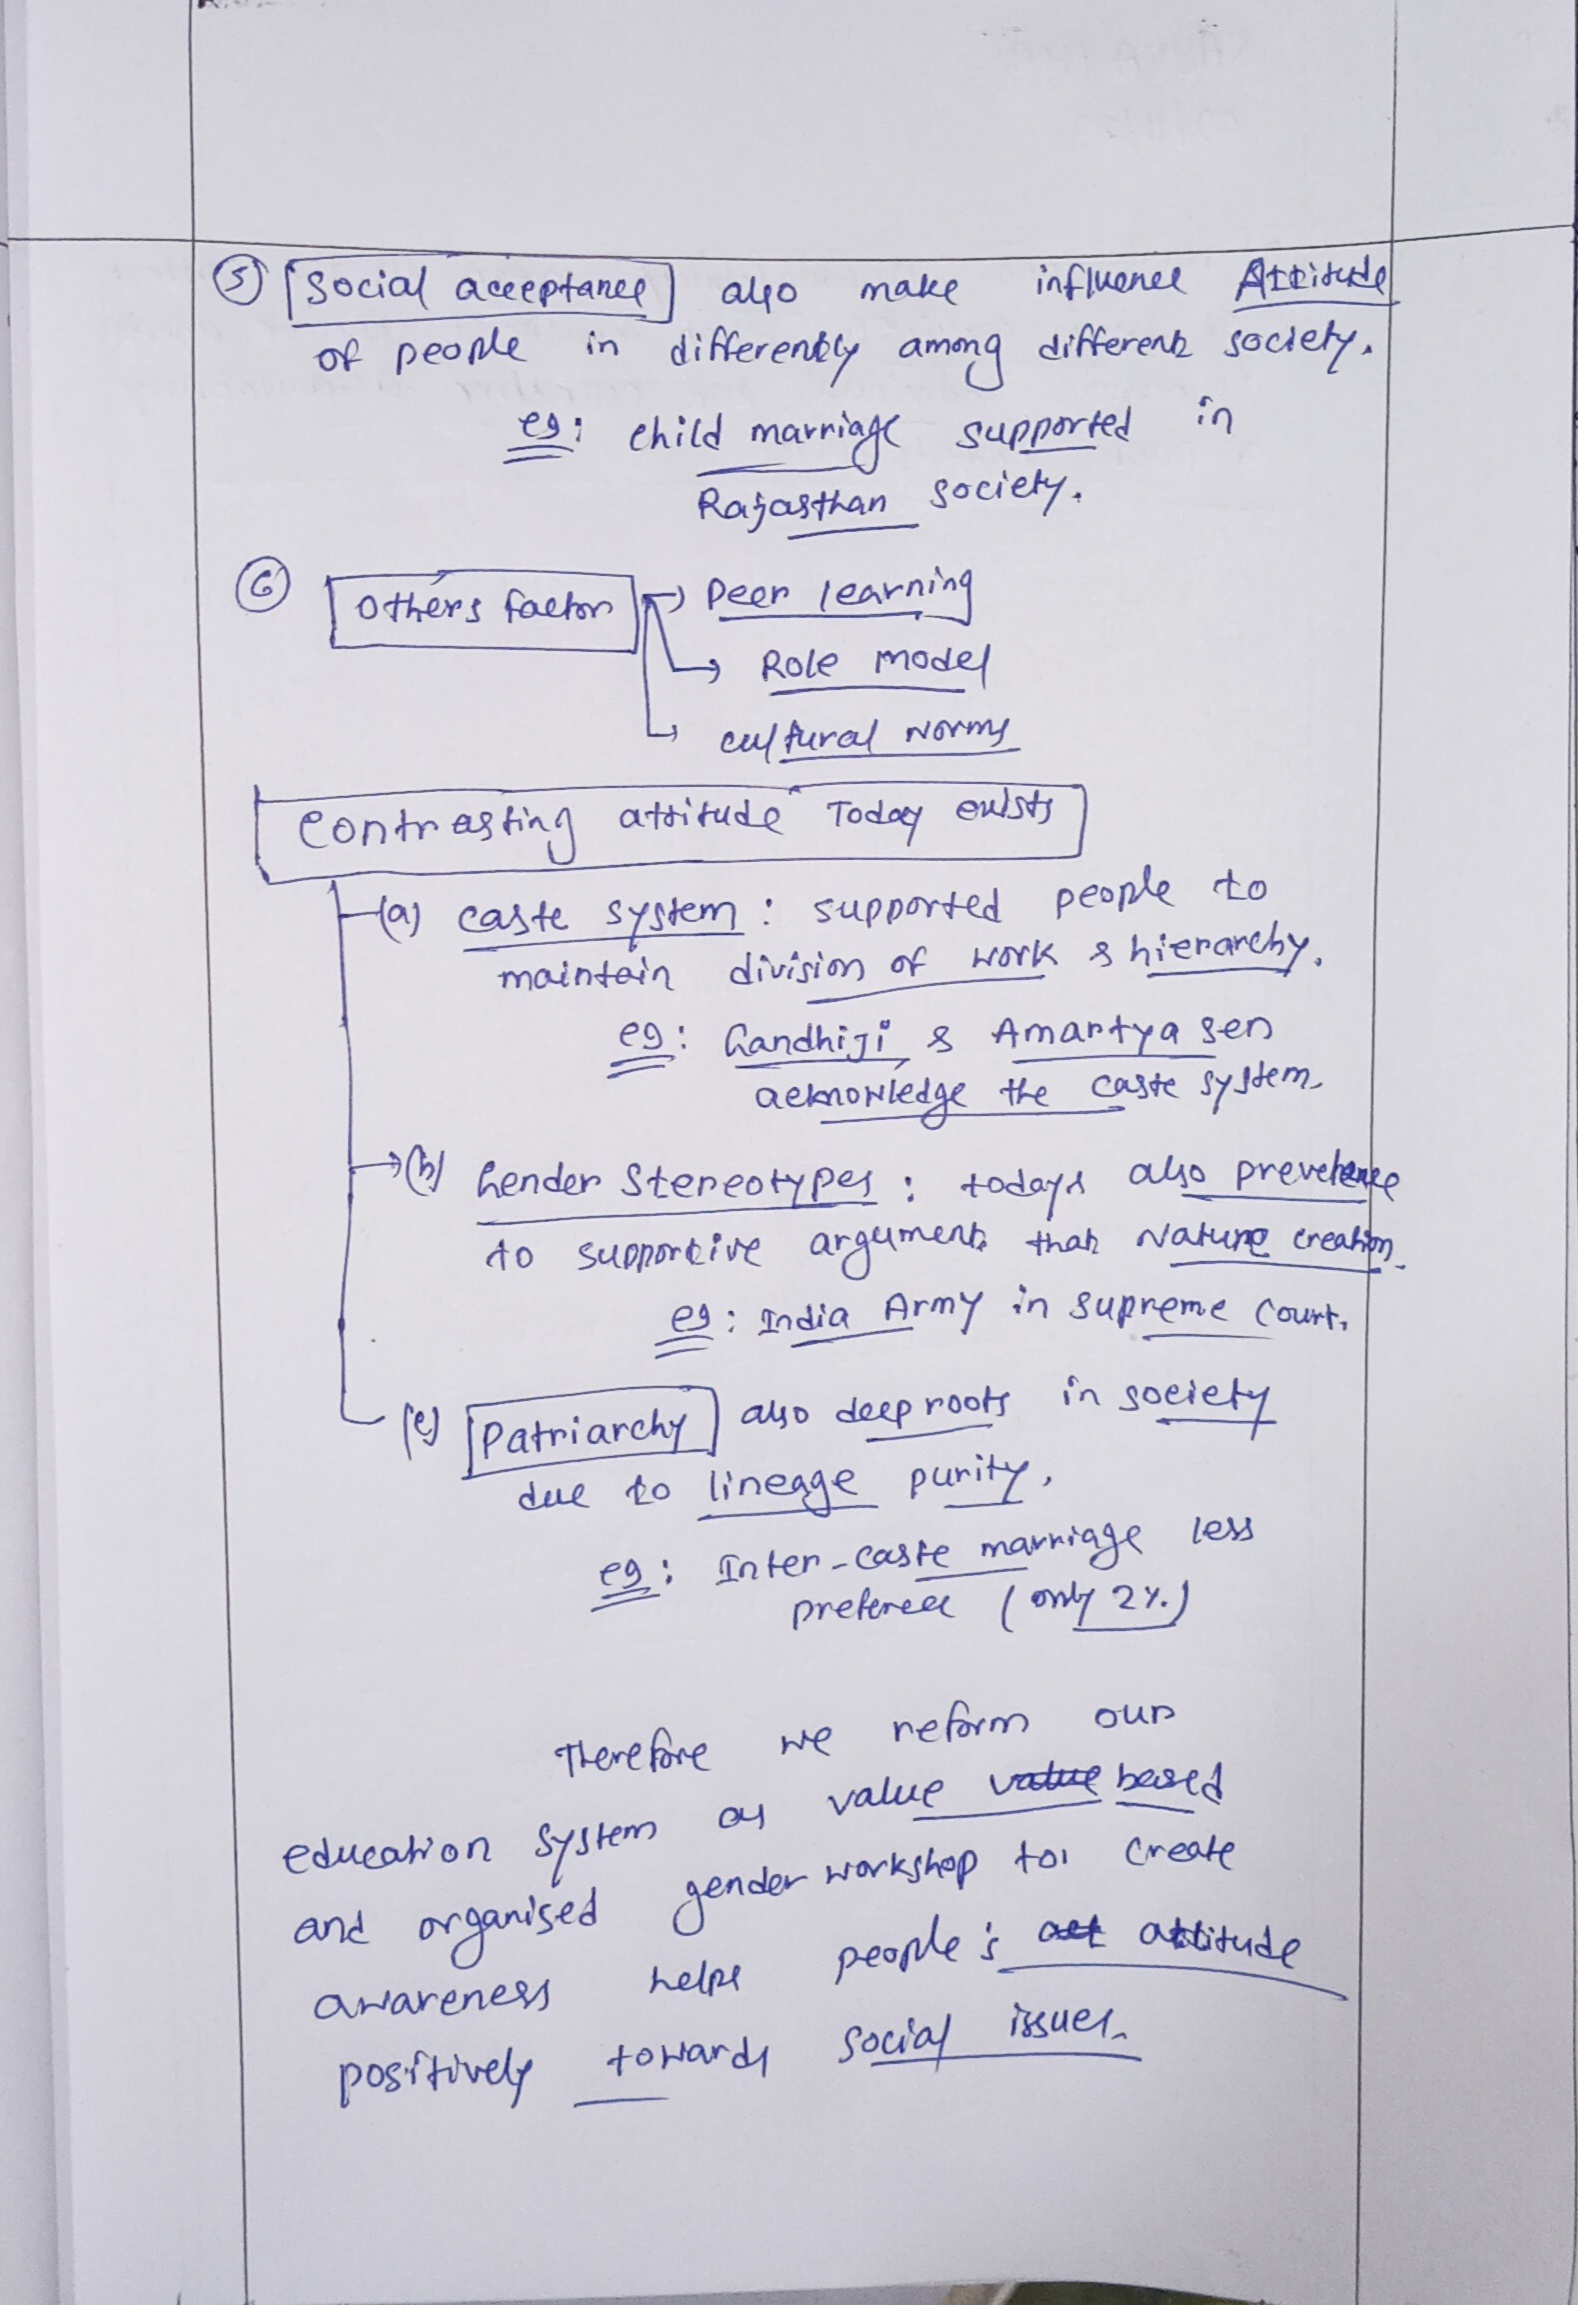 ⑤ Social acceptance also make influence Attitude
of people in differently among different society.
eg: child marriage supported in
Rajasthan society.
⑥ Others factor → Peer learning
→ Role model
→ cultural Norms
Contrasting attitude Today exists
(a) caste system : supported people to
maintain division of work & hierarchy.
eg: Gandhiji & Amartya Sen
acknowledge the caste system.
→ (b) Gender Stereotypes : todays also
to supportive arguments that Nature creation.
eg: India Army in Supreme Court.
(c) Patriarchy also deep roots in society
due to lineage purity.
eg: Inter-caste marriage less
(only 2%)
Therefore we reform our
education system as value value based
and organised gender workshop to create
awareness helps people's att attitude
positively towards social issues.